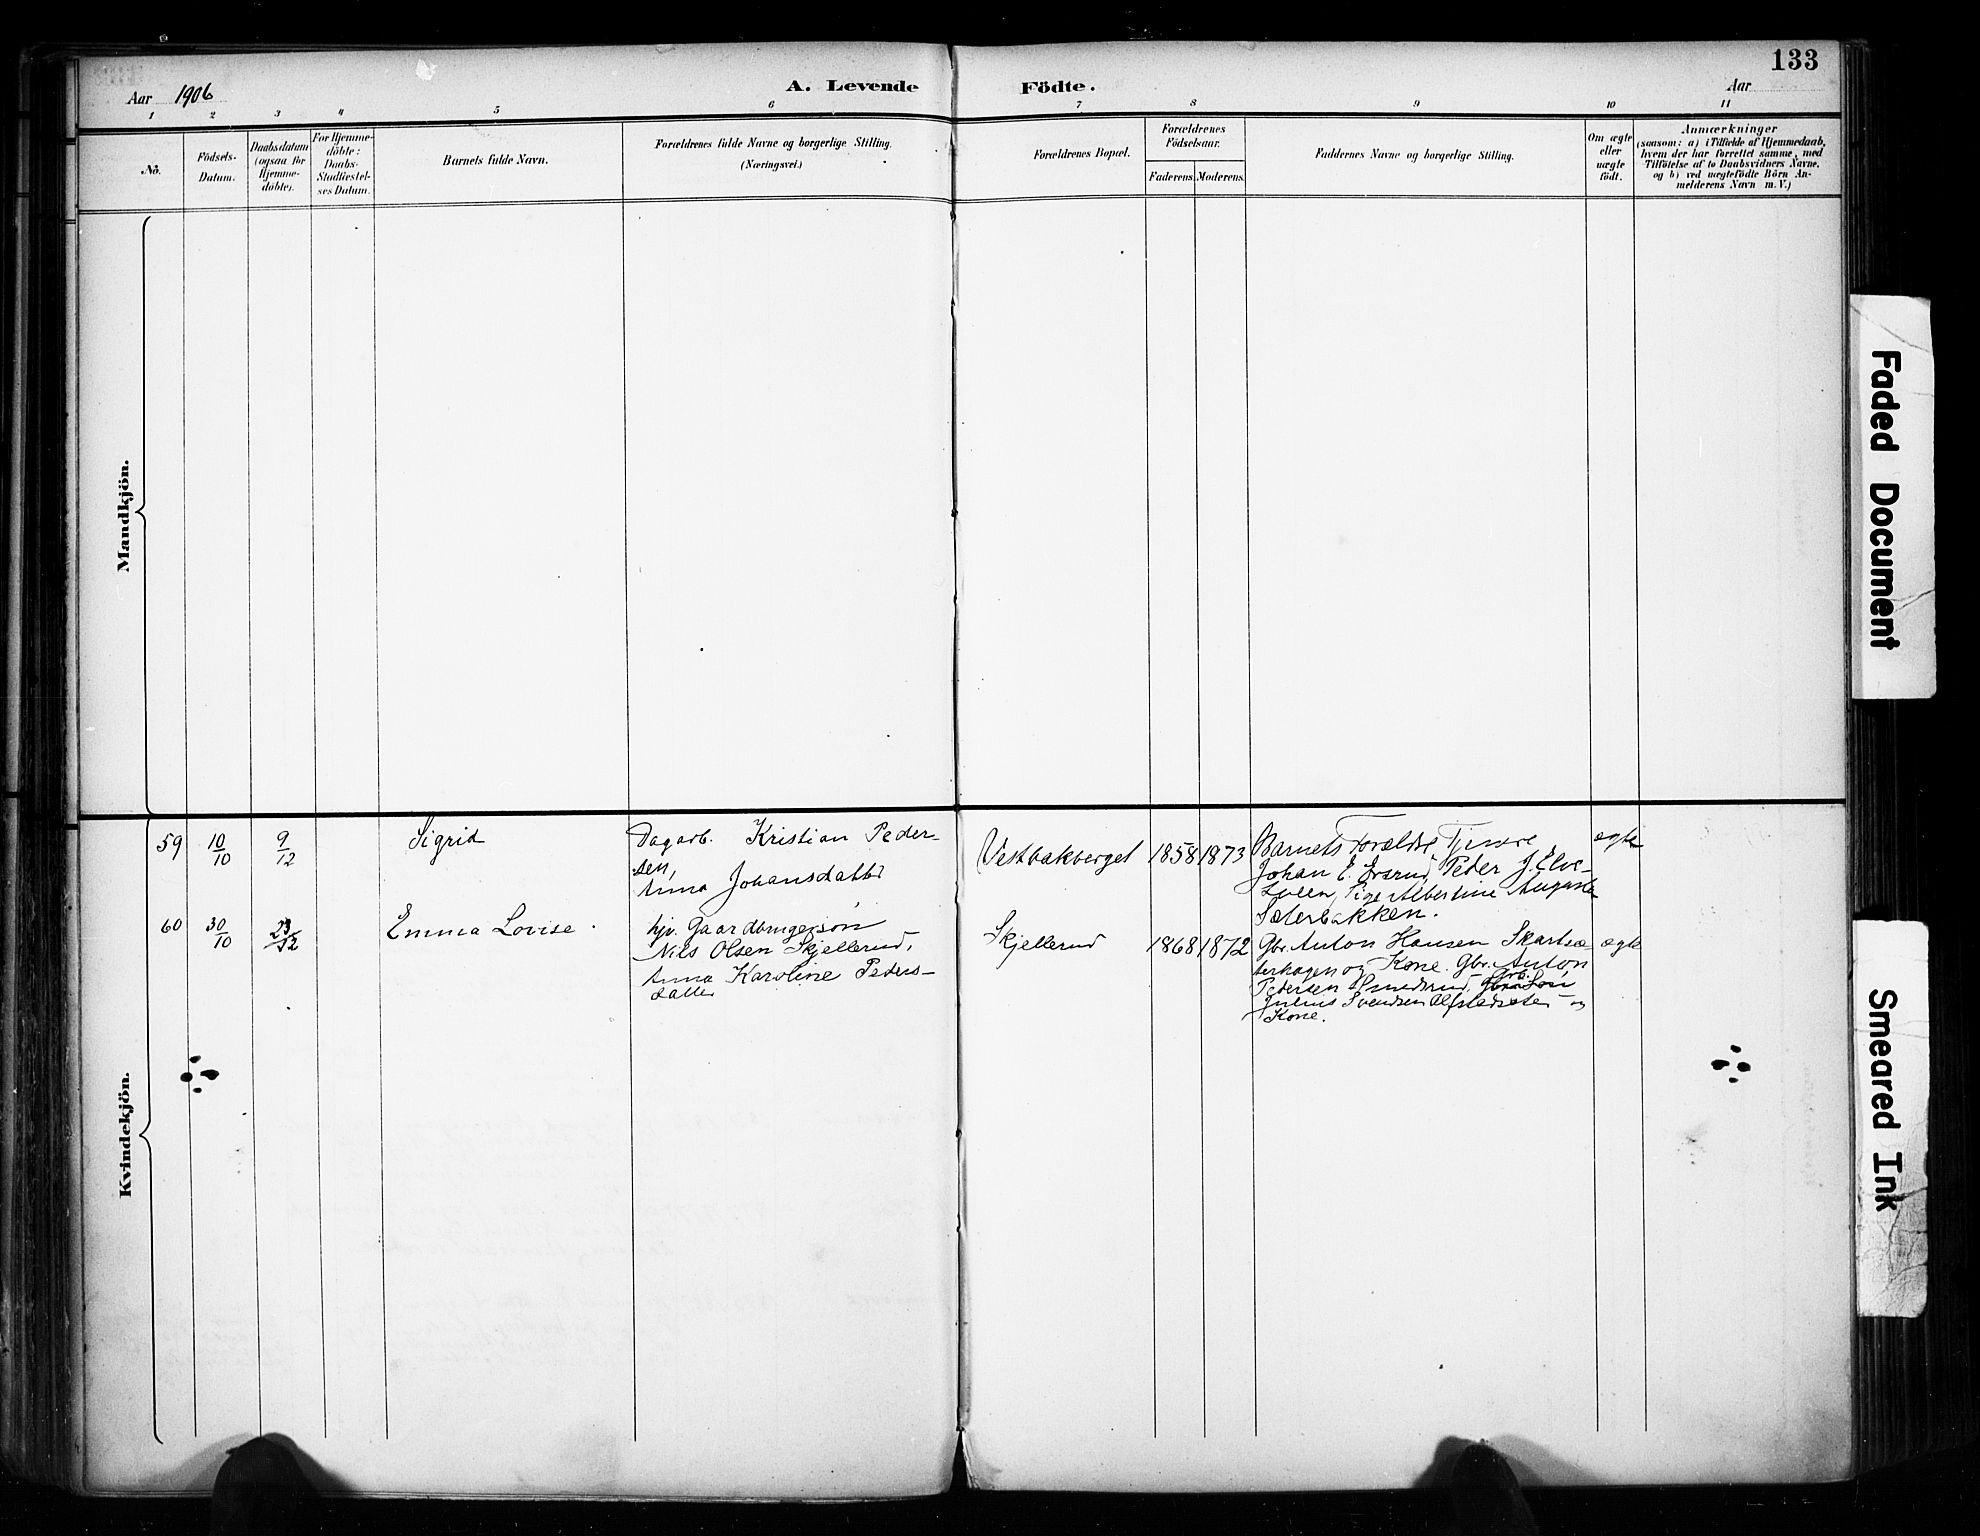 133
Aar 1906 A. Levende Födte. Aar
1 2 3 4 5 6 7 8 9 10 11
No.
Födsels-
Datum.
Daabsdatum
(ogsaa for
Hjemme-
döbte).
For Hjemme-
döbte:
Daabs-
Stadfæstel-
ses Datum.
Barnets fulde Navn.
Forældrenes fulde Navne og borgerlige Stilling.
(Næringsvei.)
Forældrenes Bopæl.
Forældrenes
Födselsaar.
Faderens. Moderens.
Faddernes Navne og borgerlige Stilling.
Om ægte
eller
uægte
födt.
Anmærkninger
(saasom: a) i Tilfælde af Hjemmedaab,
hvem der har forrettet samme, med
Tilföielse af to Daabsvidners Navne,
og b) ved uægtefödte Börn An-
melderens Navn m. V.)
Mandkjön.
Kvindekjön.
59 10/10 9/12 Sigrid
Dagarb. Kristian Peder-
sen,
Anna Johansdatter
Vestbakberget 1858 1873
Barnets Forældre, Tjenere
Johan E. Ersrud, Peder J. Elve-
sveen, Pige Albertine Augusta
Sæterbakken.
ægte
60 30/10 23/12 Emma Lovise.
hjv. Gaardbrugersøn
Nils Olsen Skjellerud,
Anna Karoline Peders-
datter
Skjellerud 1868 1872
Gbr. Anton Hansen Skartsæ-
terhagen og Kone. Gbr. Anton
Pedersen Smedsrud, Grb.
Julius Svendsen og
Kone.
ægte
Faded Document
Smeared Ink